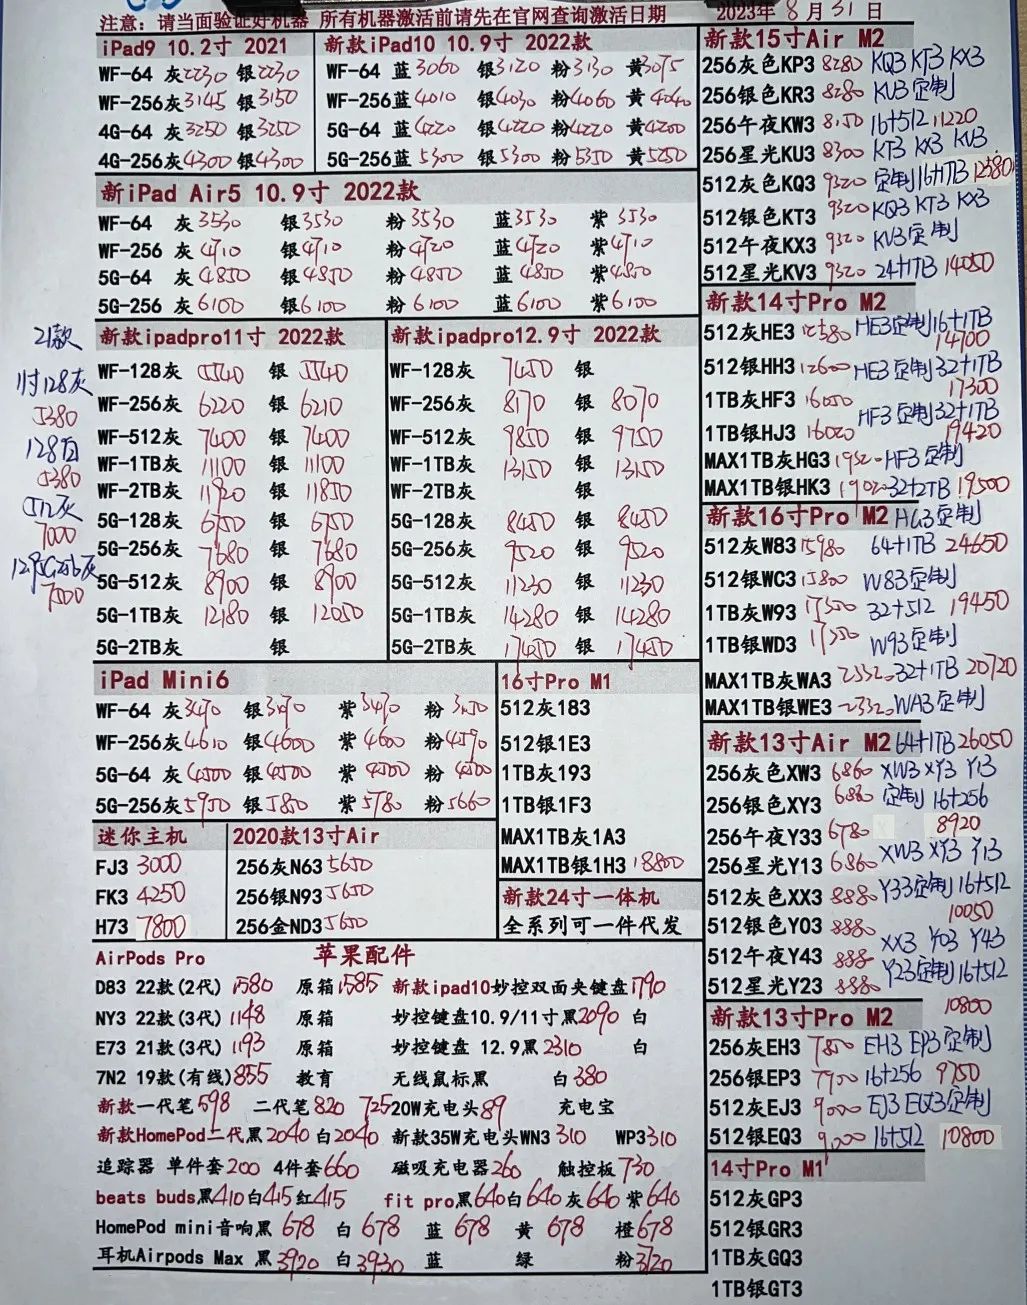 注意：请当面验证好机器 所有机器激活前请先在官网查询激活日期 2023年8月31日
iPad9 10.2寸 2021
WF-64 灰2230 银2230
WF-256灰3145 银3150
4G-64 灰3250 银3250
4G-256灰4300 银4300
新款iPad10 10.9寸 2022款
WF-64 蓝3060 银3120 粉3130 黄3075
WF-256蓝4010 银4030 粉4060 黄4040
5G-64 蓝4220 银4220 粉4220 黄4200
5G-256蓝5300 银5300 粉5350 黄5250
新iPad Air5 10.9寸 2022款
WF-64 灰3530 银3530 粉3530 蓝3530 紫3530
WF-256 灰4710 银4710 粉4720 蓝4720 紫4710
5G-64 灰4850 银4850 粉4850 蓝4850 紫4850
5G-256 灰6100 银6100 粉6100 蓝6100 紫6100
21款
11寸128灰
5380
128白
5380
512灰
7000
12.9 5G256灰
7500
新款ipadpro11寸 2022款
WF-128灰 5540 银 5540
WF-256灰 6220 银 6210
WF-512灰 7400 银 7400
WF-1TB灰 11100 银 11100
WF-2TB灰 11920 银 11850
5G-128灰 6750 银 6750
5G-256灰 7680 银 7680
5G-512灰 8900 银 8900
5G-1TB灰 12180 银 12050
5G-2TB灰 银
新款ipadpro12.9寸 2022款
WF-128灰 7450 银
WF-256灰 8170 银 8070
WF-512灰 9850 银 9750
WF-1TB灰 13150 银 13150
WF-2TB灰 银
5G-128灰 8450 银 8450
5G-256灰 9520 银 9520
5G-512灰 11230 银 11230
5G-1TB灰 14280 银 14280
5G-2TB灰 17450 银 17450
iPad Mini6
WF-64 灰3470 银3470 紫3470 粉3450
WF-256灰4610 银4600 紫4600 粉4590
5G-64 灰4500 银4500 紫4500 粉4500
5G-256灰5950 银5850 紫5780 粉5660
16寸Pro M1
512灰183
512银1E3
1TB灰193
1TB银1F3
MAX1TB灰1A3
MAX1TB银1H3 18800
新款24寸一体机
全系列可一件代发
迷你主机
FJ3 3000
FK3 4250
H73 7800
2020款13寸Air
256灰N63 5650
256银N93 5650
256金ND3 5600
AirPods Pro 苹果配件
D83 22款(2代) 1580 原箱1585 新款ipad10妙控双面夹键盘1790
NY3 22款(3代) 1148 原箱 妙控键盘10.9/11寸黑2090 白
E73 21款(3代) 1193 原箱 妙控键盘 12.9黑2310 白
7N2 19款(有线)855 教育 无线鼠标黑 白380
新款一代笔598 二代笔820 725 20W充电头89 充电宝
新款HomePod二代黑2040 白2040 新款35W充电头WN3 310 WP3310
追踪器 单件套200 4件套660 磁吸充电器260 触控板730
beats buds黑410白415红415 fit pro黑640白640灰640紫640
HomePod mini音响黑 678 白 678 蓝 678 黄 678 橙678
耳机Airpods Max 黑3920 白3930 蓝 绿 粉3720
新款15寸Air M2
256灰色KP3 8280 KQ3 KT3 KX3
256银色KR3 8280 KU3定制
256午夜KW3 8150 16+512 11220
256星光KU3 8300 KT3 KX3 KV3
512灰色KQ3 9320 定制16+1TB 12580
512银色KT3 9320 KQ3 KT3 KX3
512午夜KX3 9320 KV3定制
512星光KV3 9320 24+1TB 14050
新款14寸Pro M2
512灰HE3 12580 HE3定制16+1TB
14100
512银HH3 12600 HE3定制32+1TB
17300
1TB灰HF3 16050 HF3定制32+1TB
1TB银HJ3 16020 19420
MAX1TB灰HG3 19520 HF3定制
MAX1TB银HK3 19020 32+2TB 19500
新款16寸Pro M2 HG3定制
512灰W83 15980 64+1TB 24650
512银WC3 15800 W83定制
1TB灰W93 17350 32+512 19450
1TB银WD3 17250 W93定制
MAX1TB灰WA3 23320 32+1TB 20720
MAX1TB银WE3 23320 WA3定制
新款13寸Air M2 64+1TB 26050
256灰色XW3 6860 XW3 XY3 Y13
256银色XY3 6880 定制16+256
256午夜Y33 6780 8920
256星光Y13 6860 XW3 XY3 Y13
512灰色XX3 8880 Y33定制16+512
512银色Y03 8880 10050
512午夜Y43 8880 XX3 Y03 Y43
512星光Y23 8880 Y23定制16+512
10800
新款13寸Pro M2
256灰EH3 7850 EH3 EP3定制
256银EP3 7950 16+256 9750
512灰EJ3 9000 EJ3 EQ3定制
512银EQ3 9200 16+512 10800
14寸Pro M1
512灰GP3
512银GR3
1TB灰GQ3
1TB银GT3